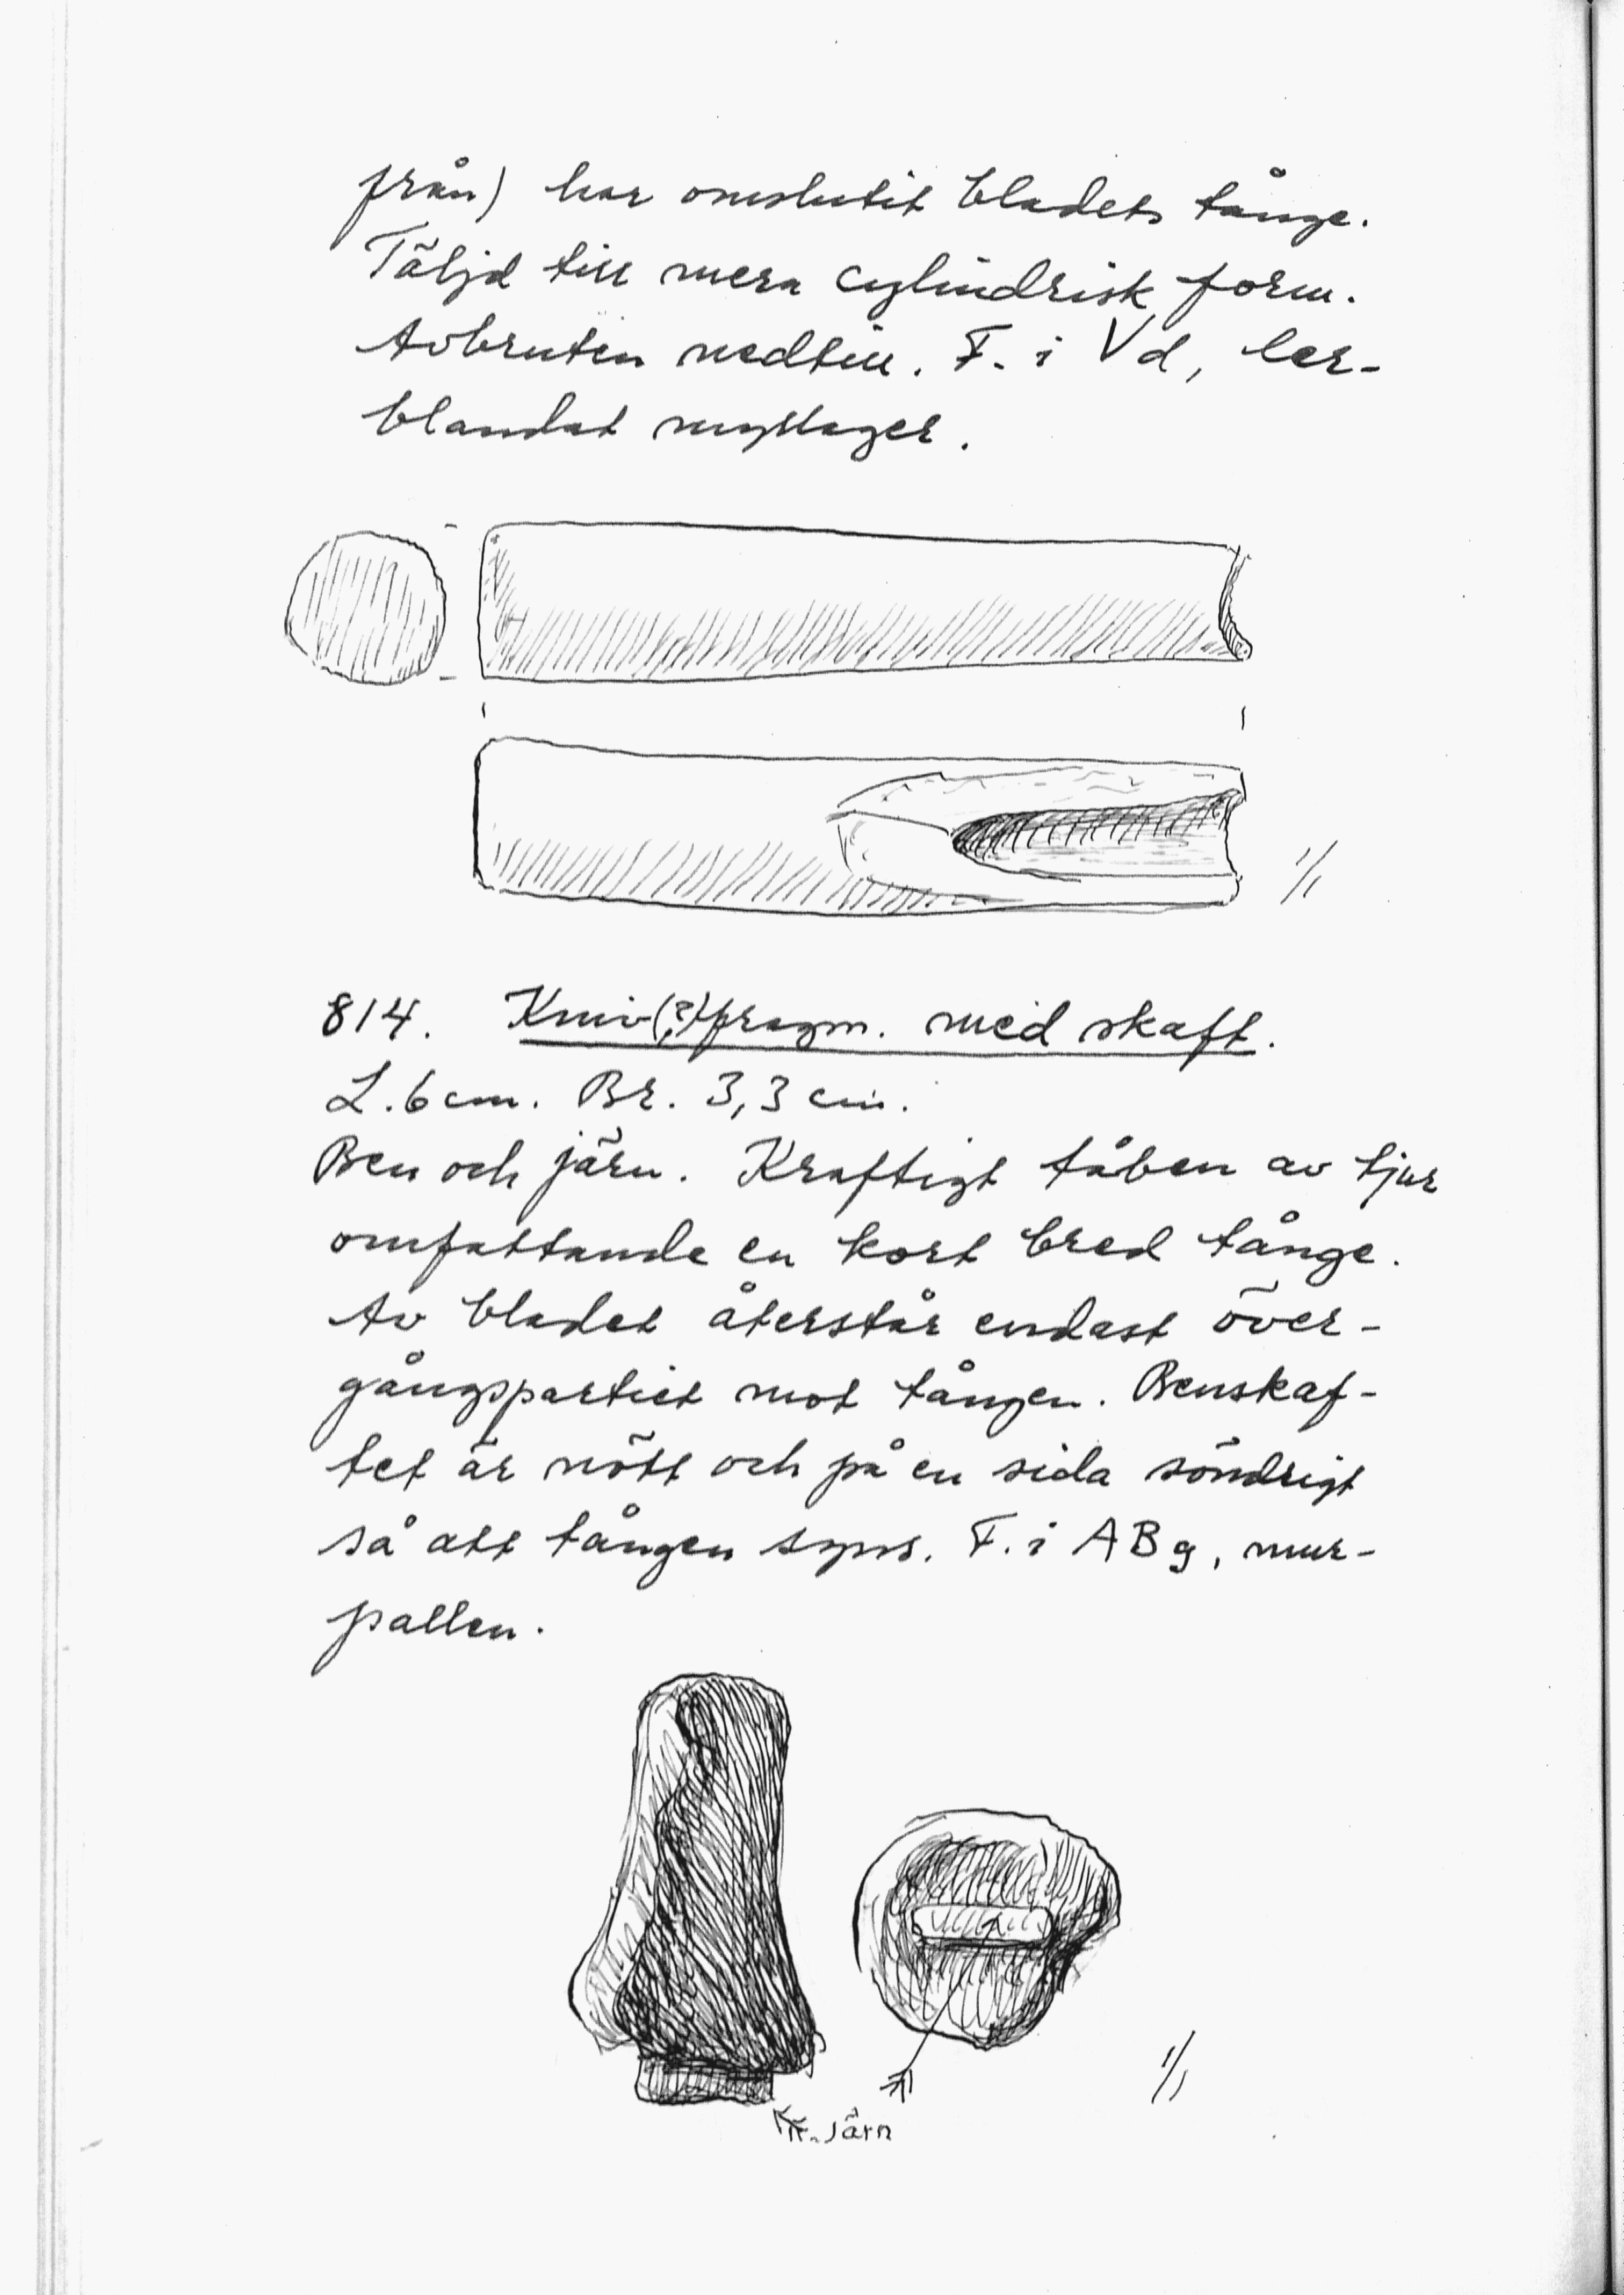 från) har omslutit bladets tånge.
Täljd till mera cylindrisk form.
Avbruten nedtill. F. i Vd, ler-
blandat myllager.
1/1
814. Kniv(?)fragm. med skaft.
L. 6 cm. Br. 3,3 cm.
Ben och järn. Kraftigt tåben av tjur
omfattande en kort bred tånge.
Av bladet återstår endast över-
gångspartiet mot tången. Benskaf-
tet är nött och på en sida söndrigt
så att tången syns. F. i ABg, mur-
pallen.
1/1
Järn